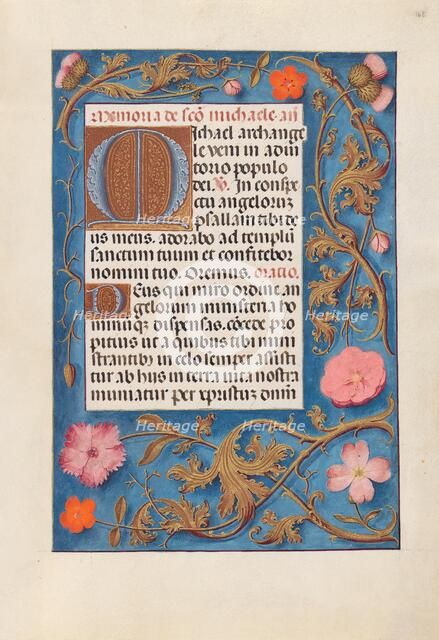 168
Memoria de scō michaele. añ
Michael archange
le veni in adiu
torio populo
dei. V. In conspe
ctu angelorum
psallam tibi de
us meus. adorabo ad templū
sanctum tuum et confitebor
nomini tuo. Oremus. oratio.
Deus qui miro ordine an
gelorum ministeria ho
minūqz dispensas. cōcede pro
pitius ut a quibus tibi mini
strantibus in celo semper assisti
tur ab hijs in terra vita nostra
muniatur per xpristum dnm̄
Heritage
Heritage
Heritage
Heritage
Heritage
Heritage
Heritage